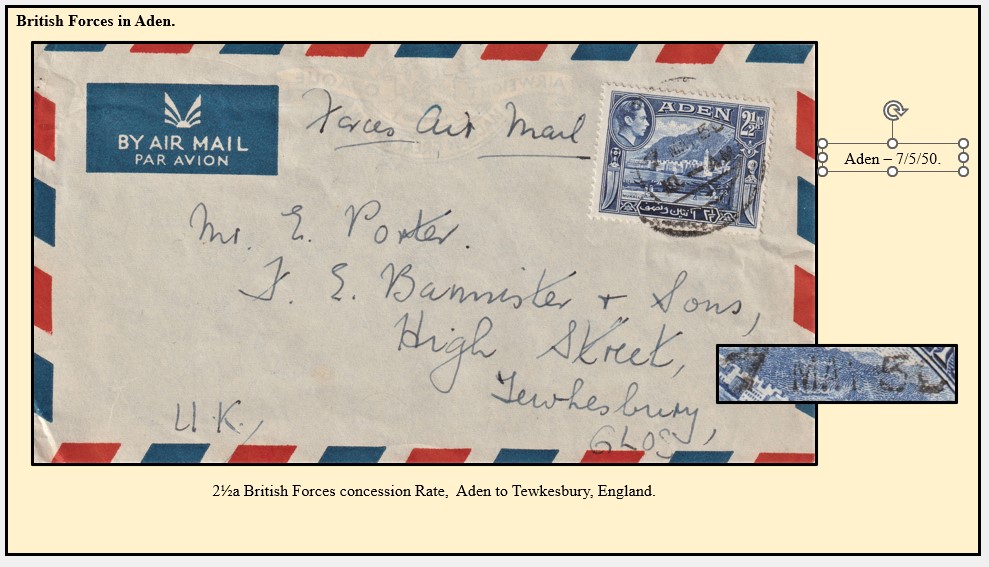 British Forces in Aden.
BY AIR MAIL
PAR AVION
Forces Air Mail
ADEN
2½ As
Aden – 7/5/50.
Mr. E. Porter.
F. E. Bannister + Sons,
High Street,
Tewkesbury
GLOS,
U.K.,
7 MAY 50
2½a British Forces concession Rate, Aden to Tewkesbury, England.